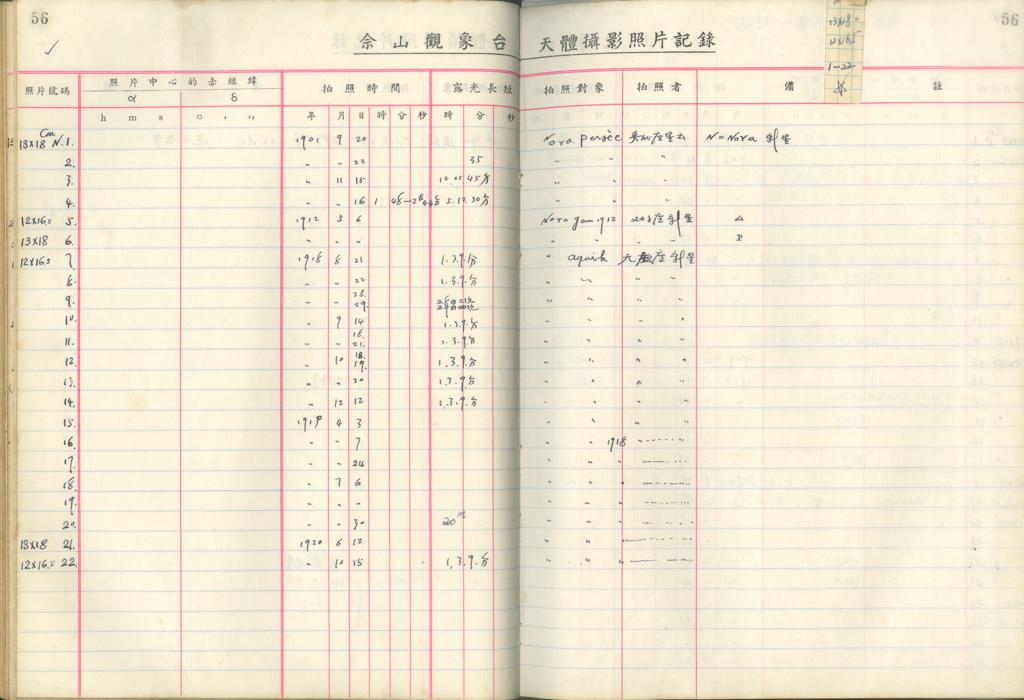 56
佘山觀象台 天體攝影照片記錄
56
13x18
12x16.5
1-22
照片號碼 照片中心的赤經緯 拍照時間 露光長短 拍照對象 拍照者 備 註
α δ
h m s o , ,, 年 月 日 時 分 秒 時 分 秒
cm
13X18 N.1. 1901 9 20 Nova Persèe 英仙座星云 N=Nova 新星
2. " " 22 35 " " "
3. " 11 15 12 22 45分 " " "
4. " " 16 1 " " "
12X16.5 5. 1912 5 6 Nova Gem 1912 双子座新星 A
13X18 6. " " " " " " " B
12X16.5 7. 1918 8 21 1.3.9.分 " aquila 天座新星
8. " " 22 1.3.9.分 " " " "
9. " " 28. 29. " " " "
10. " 9 14 1.3.9.分 " " " "
11. " " 18. 21. 1.3.9.分 " " " "
12. " 10 18. 19. 1.3.9.分 " " " "
13. " " 20 1.3.9.分 " " " "
14. " 12 12 1.3.9.分 " " " "
15. 1919 4 3 " " " "
16. " " 7 " " 1918 "
17. " " 24 " " "
18. " 7 6 " " "
19. " " " " " "
20. " " 30 20m " " "
13X18 21. 1920 6 12 " " "
12X16.5 22. " 10 15 1.3.9.分 " " "